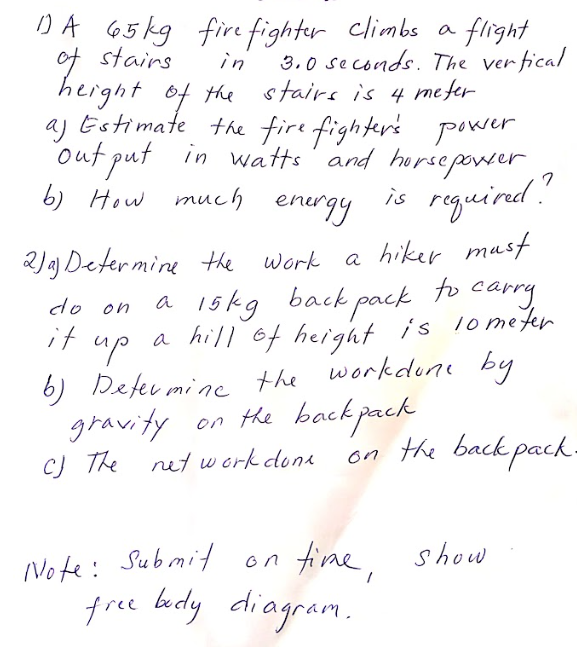 1) A 65kg fire fighter climbs a flight
of stairs in 3.0 seconds. The vertical
height of the stairs is 4 meter
a) Estimate the fire fighter's power
output in watts and horsepower
b) How much energy is required?
2) a) Determine the work a hiker must
do on a 15kg back pack to carry
it up a hill of height is 10 meter
b) Determine the workdone by
gravity on the backpack
c) The net workdone on the backpack.
Note: Submit on time, show
free body diagram.